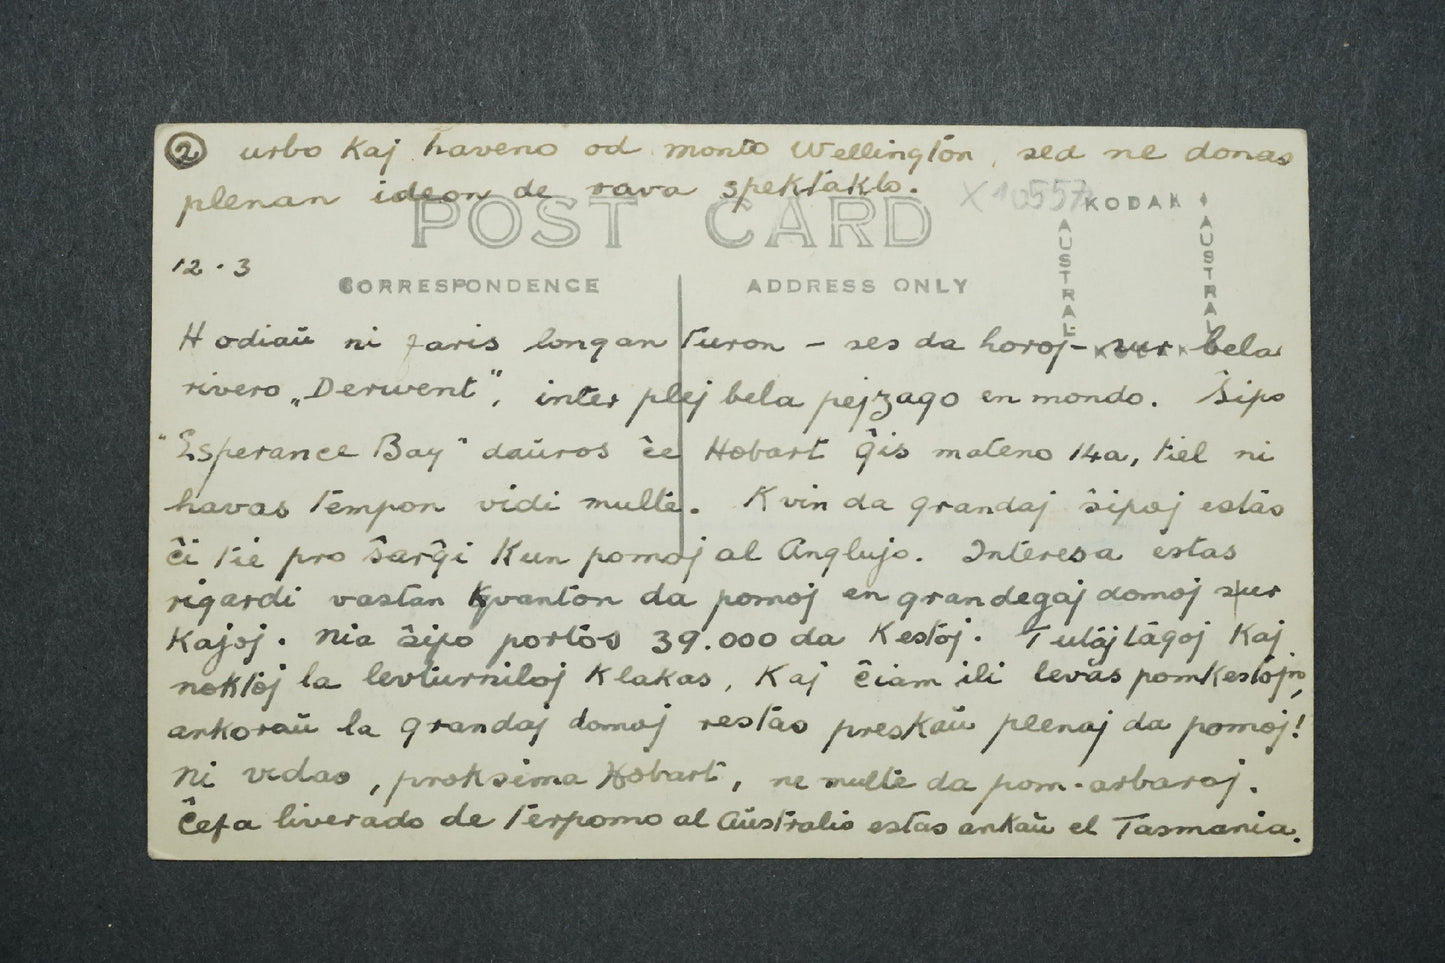 ② urbo kaj haveno od monto Wellington, sed ne donas
plenan ideon de rava spektaklo.
X10557
POST CARD
KODAK
AUSTRAL
AUSTRAL
12.3
CORRESPONDENCE
ADDRESS ONLY
Hodiaŭ ni faris longan turon – ses da horoj – sur bela
rivero „Derwent", inter plej bela pejzago en mondo. Ŝipo
"Esperance Bay" daŭros ĉe Hobart ĝis mateno 14a, tiel ni
havas tempon vidi multe. Kvin da grandaj ŝipoj estas
ĉi tie pro ŝarĝi kun pomoj al Anglujo. Interesa estas
rigardi vastan kvanton da pomoj en grandegaj domoj sur
kajoj. Nia ŝipo portos 39.000 da kestoj. Tutaj tagoj kaj
noktoj la levturniloj klakas, kaj ĉiam ili levas pomkestojn,
ankoraŭ la grandaj domoj restas preskaŭ plenaj da pomoj!
Ni vidas, proksima Hobart, ne multe da pom-arbaroj.
Ĉefa liverado de terpomo al Aŭstralio estas ankaŭ el Tasmania.